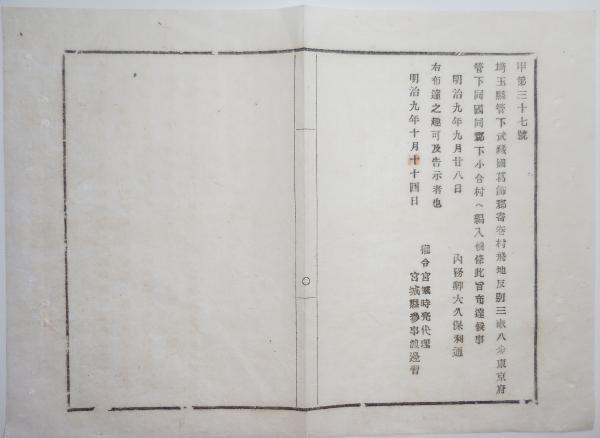 甲第三十七號
埼玉縣管下武蔵國葛飾郡寄巻村飛地反別三畝八歩東京府
管下同國同郡下小合村ヘ編入候條此旨布達候事
明治九年九月廿八日
內務卿大久保利通
右布達之趣可及告示者也
明治九年十月十十四日
權令宮城時亮代理
宮城縣參事渡邊